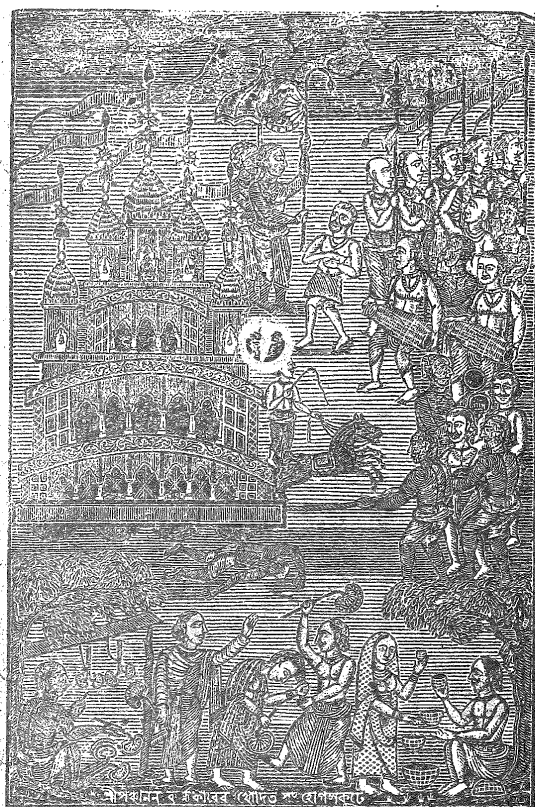 শ্রীপঞ্চানন কর্ম্মকারের খোদিত সাং হোগলকুড়ে